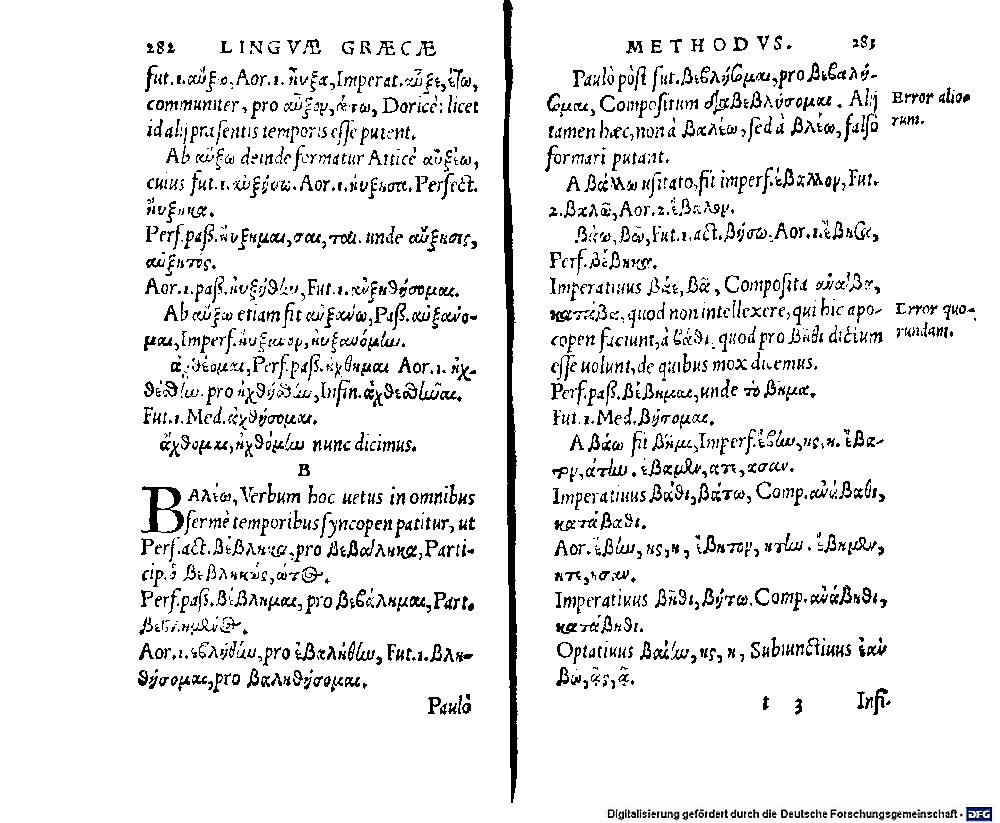 282 LINGVÆ GRÆCÆ
fut.1.αὔξω, Aor.1.ἤυξα, Imperat.αὖξε, έτω,
communiter, pro αὖξον, άτω, Doricè: licet
id alij præsentis temporis esse putent.
Ab αὔξω deinde formatur Atticè αὐξέω,
cuius fut.1.αὐξήσω. Aor.1.ἤυξησα. Perfect.
ἤυξηκα.
Perf.paß.ἤυξημαι, σαι, ται. unde αὔξησις,
αὐξητός.
Aor.1.paß.ἠυξήθην, Fut.1.αὐξηθήσομαι.
Ab αὔξω etiam fit αὐξάνω, Paß.αὐξάνο-
μαι, Imperf.ἤυξανον, ἠυξανόμην.
ἀχθέομαι, Perf.paß.ἤχθημαι Aor.1.ἠχ-
θέσθην. pro ἠχθήσθην, Infin.ἀχθεσθῆναι.
Fut.1.Med.ἀχθήσομαι.
ἄχθομαι, ἠχθόμην nunc dicimus.
B
BΑλέω, Verbum hoc uetus in omnibus
fermè temporibus syncopen patitur, ut
Perf.act.βέβληκα, pro βεβάληκα, Parti-
cip. ὁ βεβληκώς, ότος.
Perf.paß.βέβλημαι, pro βεβάλημαι, Part.
βεβλημένος.
Aor.1.ἐβλήθην, pro ἐβαλήθην, Fut.1.βλη-
θήσομαι, pro βαληθήσομαι.
Paulò
METHODVS. 283
Paulò pòst fut.βεβλήσομαι, pro βεβαλή-
σομαι, Compositum διαβεβλήσομαι. Alij
tamen hæc, non à βαλέω, sed à βλέω, falsò
formari putant.
Error alio-
rum.
A βάλλω usitato, fit imperf.ἔβαλλον, Fut.
2.βαλῶ, Aor.2.ἔβαλον.
βάω, βῶ, Fut.1.act.βήσω. Aor.1.ἔβησα,
Perf.βέβηκα.
Imperatiuus βάε, βᾶ, Composita ἀνάβα,
κατάβα, quod non intellexere, qui hic apo-
copen faciunt, à βάθι, quod pro βῆθι dictum
esse uolunt, de quibus mox dicemus.
Error quo-
rundam.
Perf.paß.βέβημαι, unde τὸ βῆμα.
Fut.1.Med.βήσομαι.
A βάω fit βῆμι, Imperf.ἔβην, ης, η. ἔβα-
τον, άτην. ἔβαμεν, ατε, ασαν.
Imperatiuus βάθι, βάτω, Comp.ἀνάβαθι,
κατάβαθι.
Aor.ἔβην, ης, η, ἔβητον, ήτην. ἔβημεν,
ητε, ησαν.
Imperatiuus βῆθι, βήτω. Comp.ἀνάβηθι,
κατάβηθι.
Optatiuus βαίην, ης, η, Subiunctiuus ἐὰν
βῶ, ᾷς, ᾷ.
t 3 Infi-
Digitalisierung gefördert durch die Deutsche Forschungsgemeinschaft - DFG